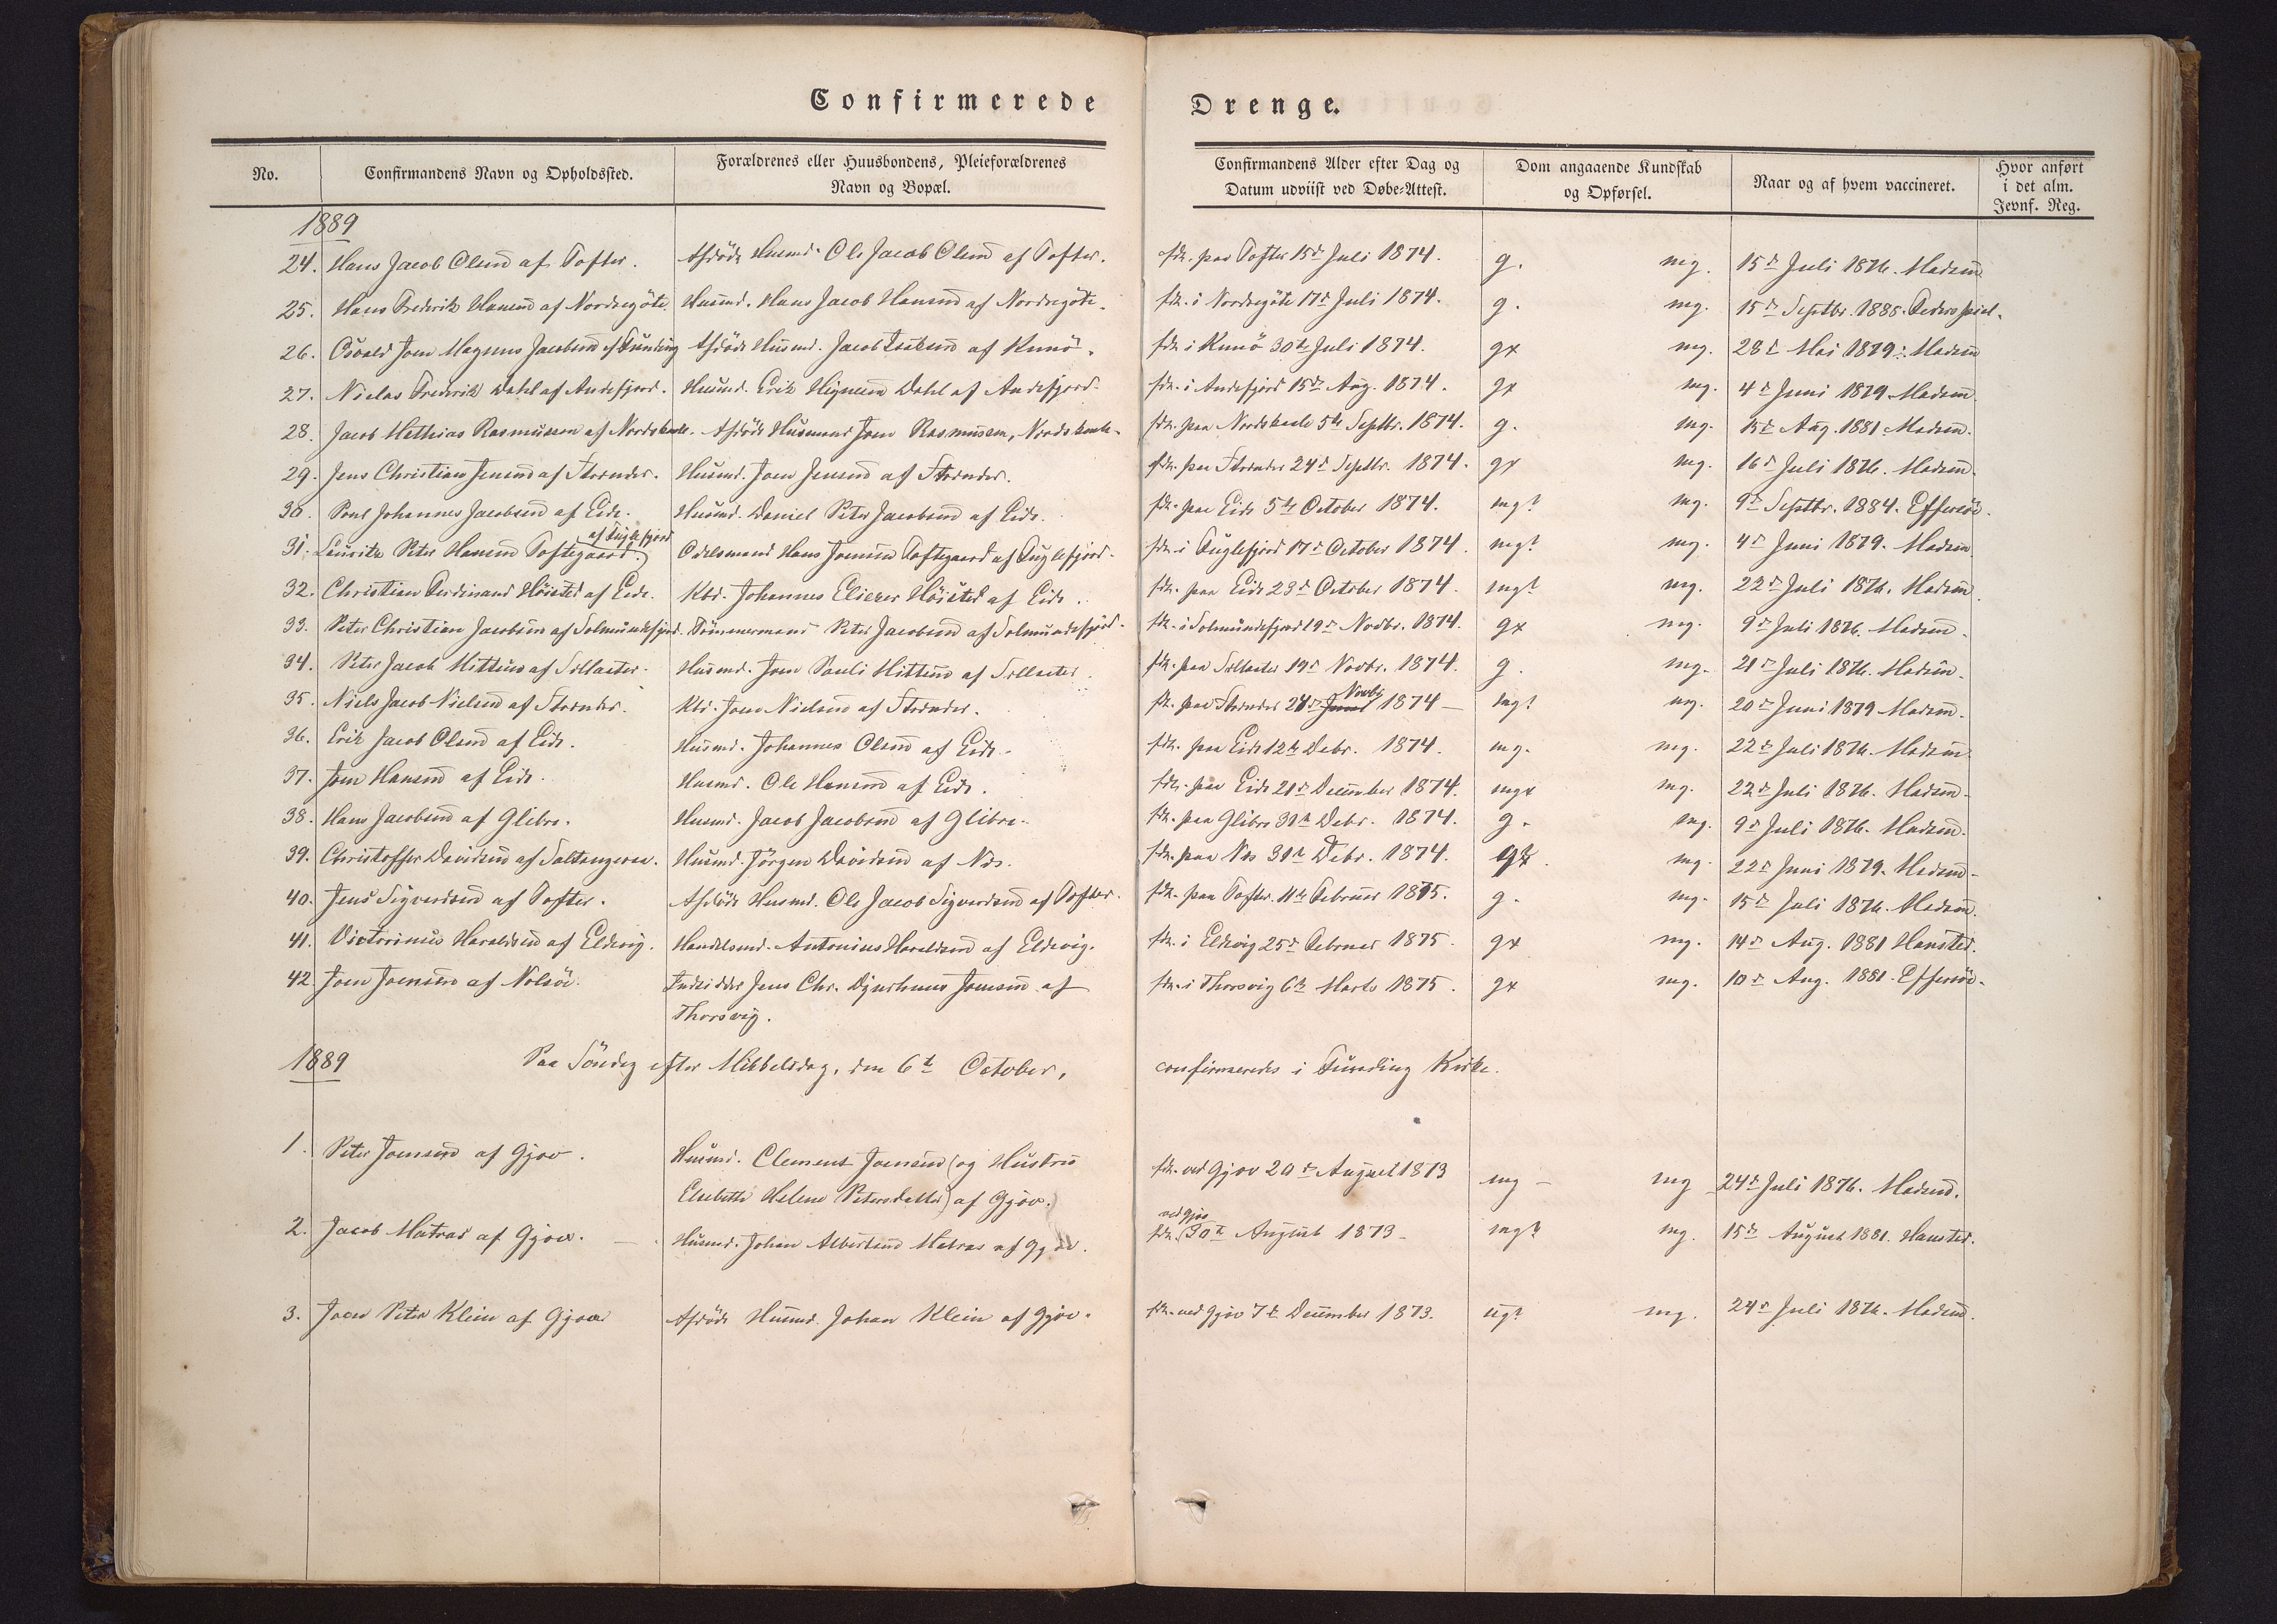 Confirmerede Drenge.
No. Confirmandens Navn og Opholdssted. Forældrenes eller Huusbondens, Pleieforældrenes Navn og Bopæl. Confirmandens Alder efter Dag og Datum udviist ved Døbe-Attest. Dom angaaende Kundskab og Opførsel. Naar og af hvem vaccineret. Hvor anført i det alm. Jevnf. Reg.
1889
24. Hans Jacob Olsen af Tofter. Afdöde Husmd. Ole Jacob Olsen af Tofter. fdt. paa Tofter 15de Juli 1874. g. mg. 15de Juli 1876. Madsen
25. Hans Frederik Hansen af Nordregöte. Husmd. Hans Jacob Hansen af Nordregöte. fdt. i Nordregöte 17de Juli 1874. g. mg. 15de Septbr. 1885. Federspiel.
26. Osvald Joen Magnus Jacobsen af Funding Afdöde Husmd. Jacob Isaksen af Kunö. fdt. i Kunö 30te Juli 1874. gx mg. 28de Mai 1879. Madsen
27. Niclas Frederik Dahl af Andefjord. Husmd. Erik Dahl af Andefjord. fdt. i Andefjord 15de Aug. 1874. gx mg. 4de Juni 1879. Madsen
28. Jacob Mathias Rasmussen af Nordskaale. Afdöde Husmand Joen Rasmussen, Nordskaale. fdt. paa Nordskaale 5te Septbr. 1874. g. mg. 15de Aug. 1881 Madsen.
29. Jens Christian Jensen af Strender. Husmd. Joen Jensen af Strender. fdt. paa Strender 24de Septbr. 1874. gx mg. 16de Juli 1876. Madsen.
30. Poul Johannes Jacobsen af Eide. Husmd. Daniel Peter Jacobsen af Eide. fdt. paa Eide 5te October 1874. mg? mg. 9de Septbr. 1884. Effersöe.
31. Lauritz Peter Hansen Toftegaard af Fuglefjord Odelsmand Hans Joensen Toftegaard af Fuglefjord. fdt. i Fuglefjord 17de October 1874. mg? mg. 4de Juni 1879. Madsen
32. Christian Ferdinand Höisted af Eide. Kbd. Johannes Elieser Höisted af Eide. fdt. paa Eide 23de October 1874. mg? mg. 22de Juli 1876. Madsen.
33. Peter Christian Jacobsen af Solmundefjord. Tömmermand Peter Jacobsen af Solmundefjord. fdt. i Solmundefjord 19de Novbr. 1874. gx mg. 9de Juli 1876. Madsen.
34. Peter Jacob Mittens af Selleter. Husmd. Joen Pauli Mittens af Selleter. fdt. paa Selleter 19de Novbr. 1874. g. mg. 21de Juli 1876. Madsen.
35. Niels Jacob Nielsen af Strender. Kbd. Joen Nielsen af Strender. fdt. paa Strender 27de Juni Novbr. 1874 mg? mg. 20de Juni 1879 Madsen.
36. Erik Jacob Olsen af Eide. Husmd. Johannes Olsen af Eide. fdt. paa Eide 12te Debr. 1874. mg. mg. 22de Juli 1876. Madsen
37. Joen Hansen af Eide. Husmd. Ole Hansen af Eide. fdt. paa Eide 21de December 1874. mgx mg. 22de Juli 1876. Madsen.
38. Hans Jacobsen af Glibre. Husmd. Jacob Jacobsen af Glibre. fdt. paa Glibre 31te Debr. 1874. g. mg. 9de Juli 1876. Madsen.
39. Christoffer Davidsen af Saltangeren. Husmd. Jörgen Davidsen af Næs. fdt. paa Næs 31te Debr. 1874. gx. mg. 22de Juni 1879. Madsen.
40. Jens Sigvardsen af Tofter. Afdöde Husmd. Ole Jacob Sigvardsen af Tofter. fdt. paa Tofter. 11te Februar 1875. g. mg. 15de Juli 1876. Madsen.
41. Victorinus Haraldsen af Eldevig. Handelsmd. Antonius Haraldsen af Eldevig. fdt. i Eldevig 25de Februar 1875. gx mg. 14de Aug. 1881 Hansted.
42. Joen Joensen af Nolsöe. Indsidder Jens Chr. Djurhuus Joensen af Thorsvig. fdt. i Thorsvig 6te Marts 1875. gx mg. 10de Aug. 1881. Effersöe.
1889 Paa Söndag efter Mikkelsdag, den 6te October, confirmeredes i Funding Kirke.
1. Peter Joensen af Gjov. Husmd. Clement Joensen (og Hustru Elsebeth Helene Petersdatter) af Gjov. fdt. ved Gjov 20de August 1873 mg mg 24de Juli 1876. Madsen.
2. Jacob Matras af Gjov. Husmd. Johan Albertsen Matras af Gjov. fdt. ved Gjov 30te August 1873 mg? mg. 15de August 1881. Hansted.
3. Peter Klein af Gjov Afdöde Husmd. Johan Klein af Gjov. fdt. ved Gjov 7de December 1873. ug? mg. 24de Juli 1876. Madsen.